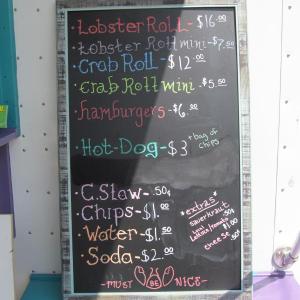 • Lobster Roll - $16.00
• Lobster Roll mini - $7.50
• Crab Roll - $12.00
• Crab Roll mini - $5.50
• hamburgers - $6.00
• Hot-Dog - $3 + bag of chips
• C. Slaw - .50¢
• Chips - $1.00
• Water - $1.50
• Soda - $2.00
*extras*
sauerkraut
lettuce/tomato
cheese .50¢
~ MUST BE NICE ~